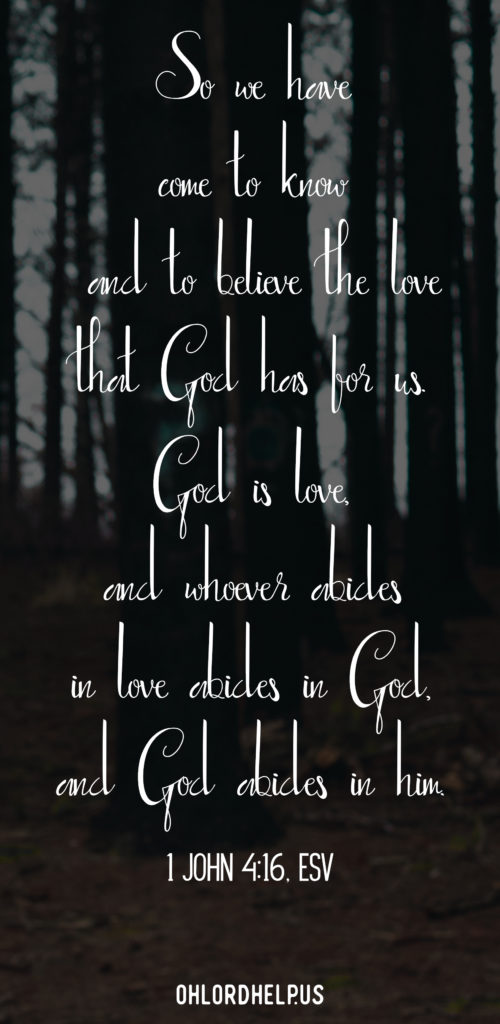 So we have
come to know
and to believe the love
that God has for us.
God is love,
and whoever abides
in love abides in God,
and God abides in him.
1 JOHN 4:16, ESV
OHLORDHELP.US